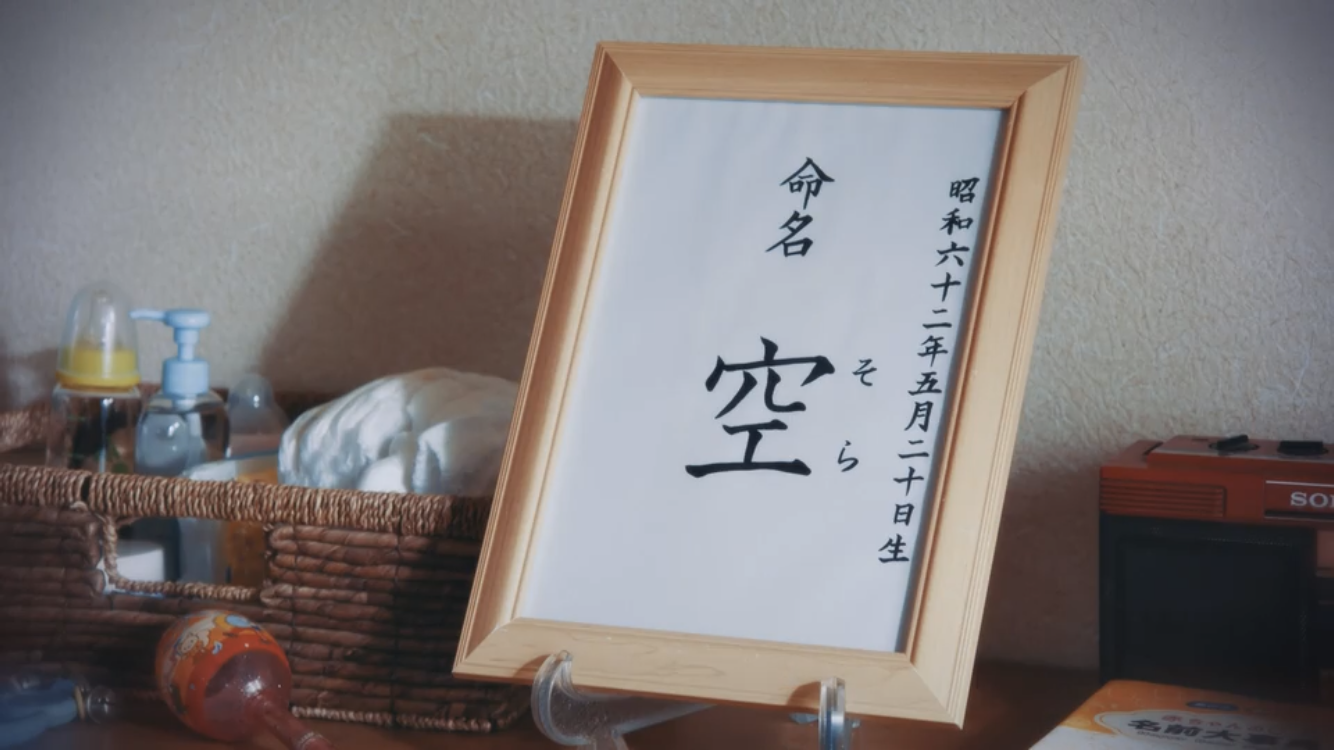 昭和六十二年五月二十日生
命名
空
そら
SO
名前大